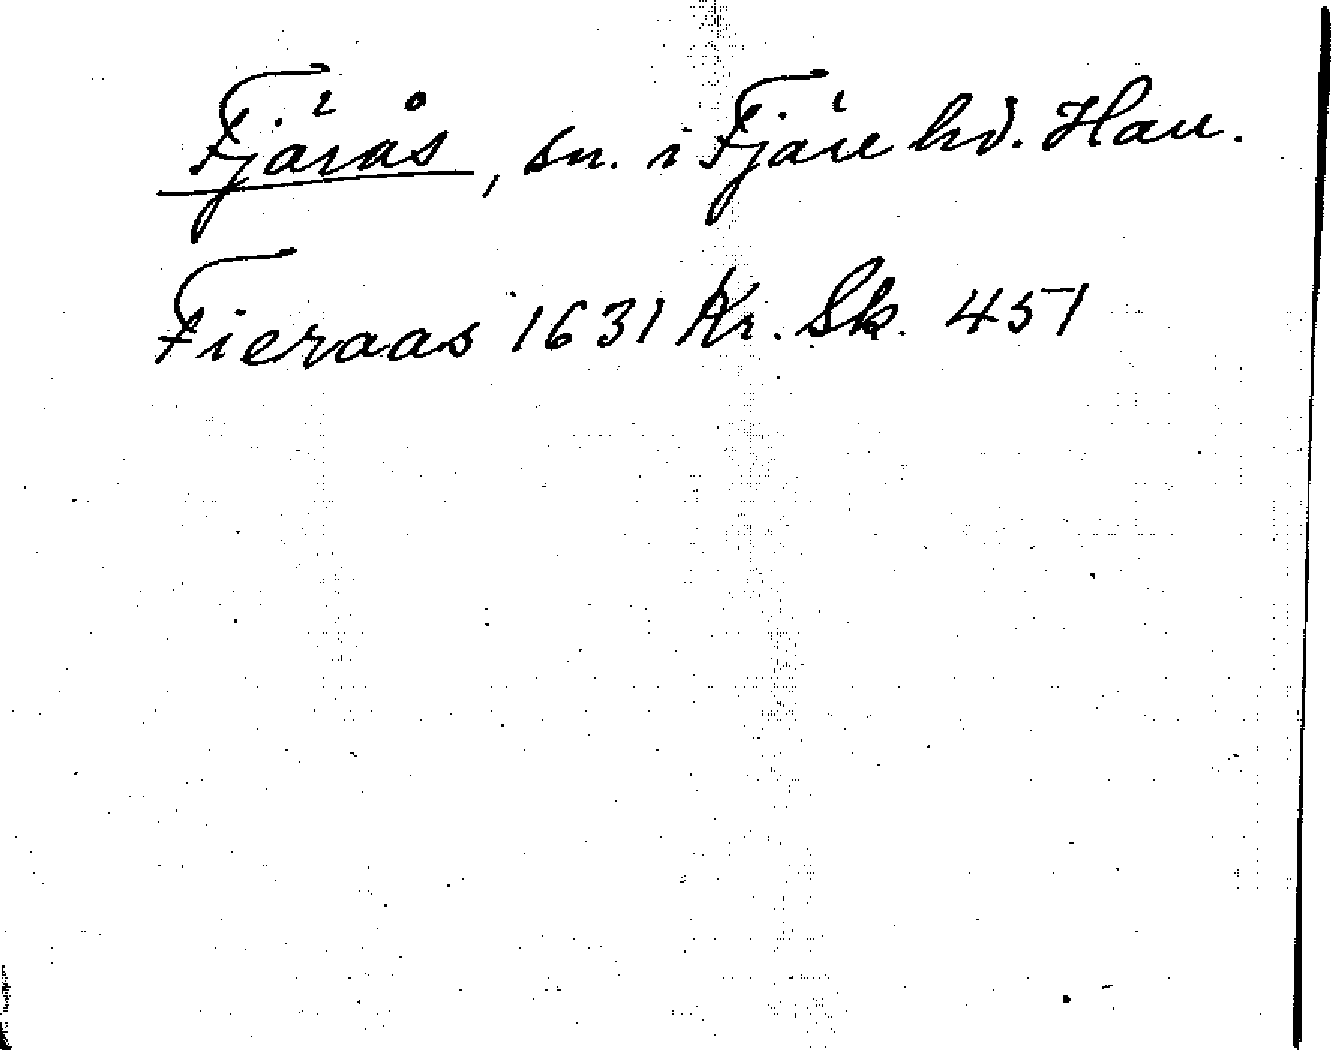 Fjärås, sn. i Fjäre hd. Hall.
Fieraas 1631 Kr. Sk. 451